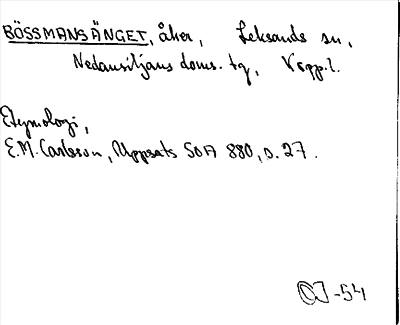 BÖSSMANSÄNGET, åker, Leksands sn,
Nedansiljans doms. tg, Kopp. l.
Etymologi,
E.M. Carlsson, Uppsats SOA 880, s. 27.
OJ -54